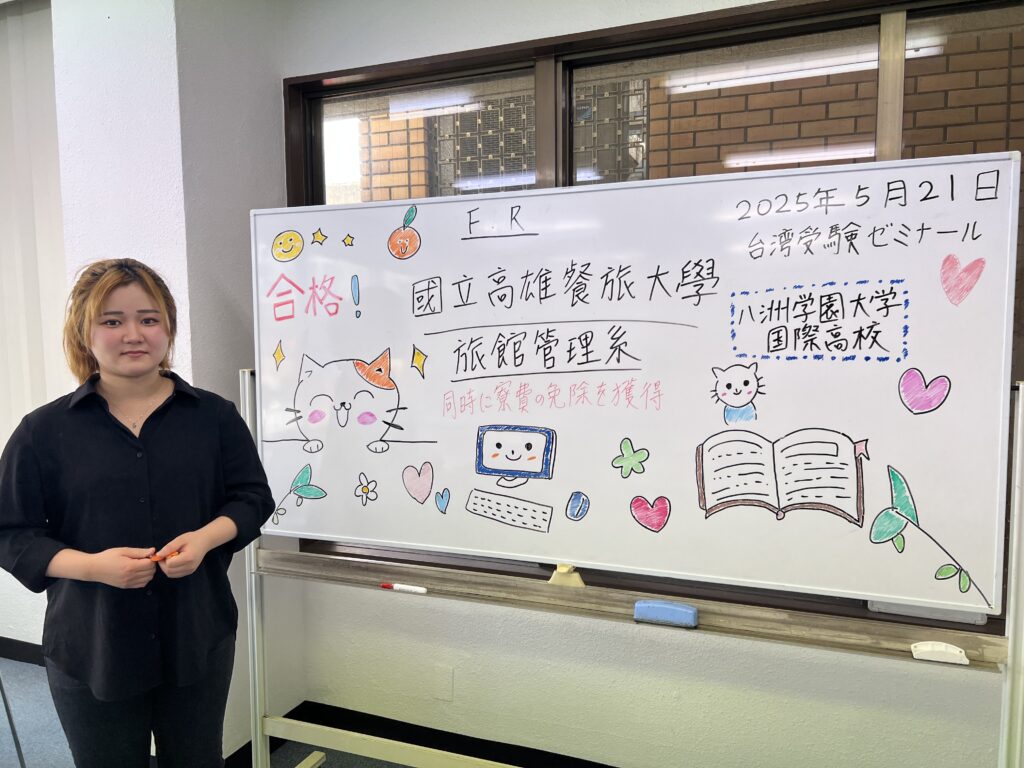 F.R
2025年5月21日
台湾受験ゼミナール
合格!
國立高雄餐旅大學
旅館管理系
同時に寮費の免除を獲得
八洲学園大学
国際高校